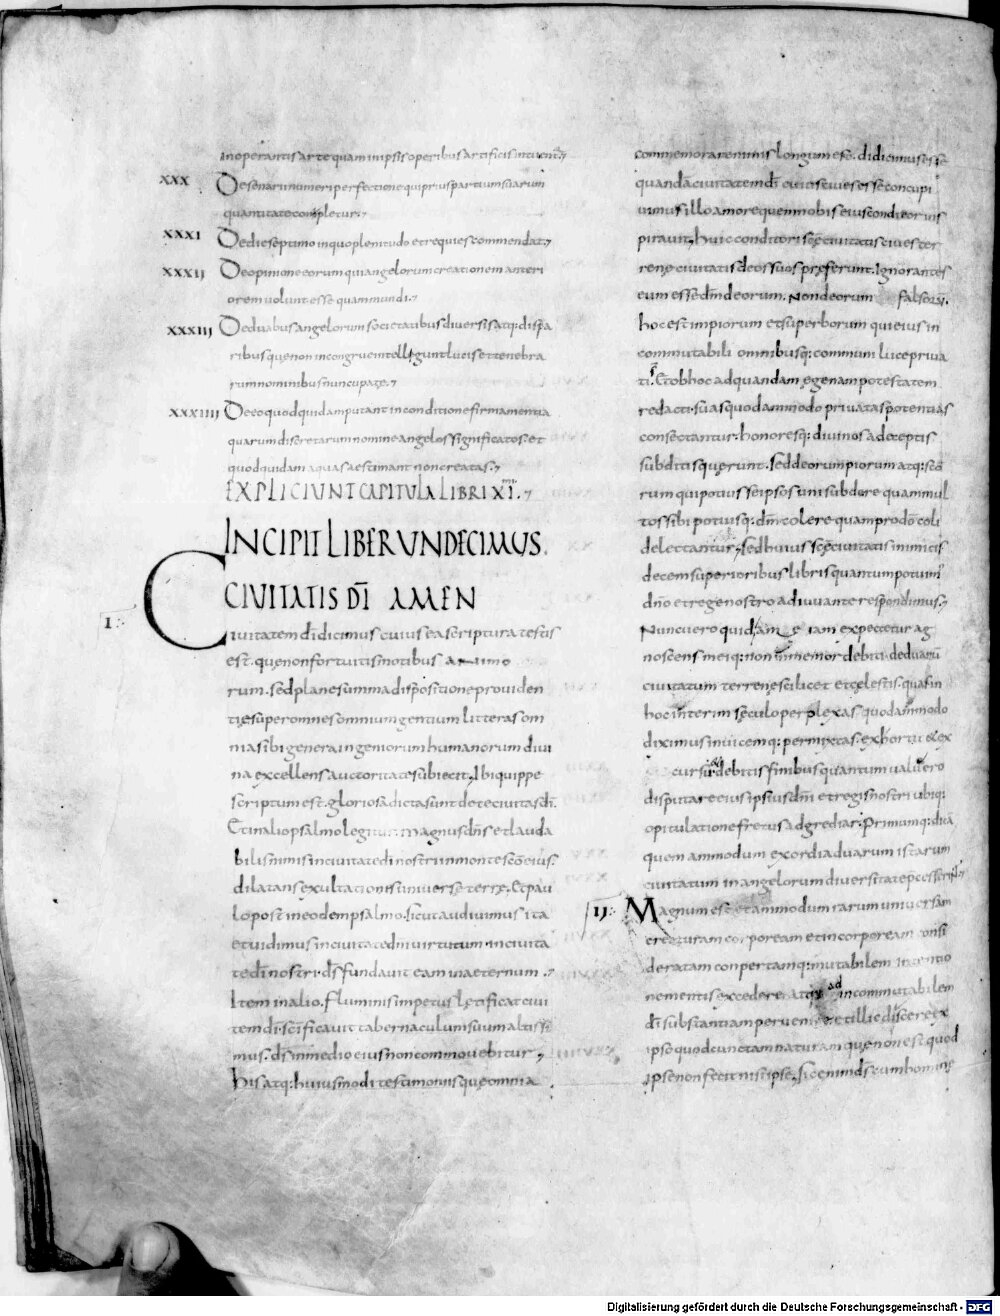 in operantis arte quam in ipsis operibus artificis intuent&
XXX De senarii numeri perfectione qui prius partium suarum
quantitate completur.
XXXI De die septimo in quo plenitudo et requies commendat
XXXII De opinione eorum qui angelorum creationem anteri
orem volunt esse quam mundi.
XXXIII De duabus angelorum societatibus diversis atq: dispa
ribus que non incongrue intelleguntur lucis et tenebra
rum nominibus nuncupate.
XXXIIII De eo quod quidam putant in conditione firmamenti a
quarum discretarum nomine angelos significatos. et
quod quidam aquas aestimant non creatas.
EXPLICIUNT CAPITULA LIBRI XI.
INCIPIT LIBER UNDECIMUS.
CIVITATIS DI AMEN
I. Civitatem di dicimus cuius ea scriptura testis
est. que non fortuitis motibus animo
rum. sed plane summa dispositione providen
tie super omnes omnium gentium litteras om
nia sibi genera ingeniorum humanorum divi
na excellens auctoritate subiecit, Ibi quippe
scriptum est. gloriosa dicta sunt de te civitas di.
Et in alio psalmo legitur. magnus dns et lauda
bilis nimis in civitate di nostri in monte sco eius.
dilatans exultationis universe terre. Et pau
lo post in eodem psalmo. sicut audivimus ita
et vidimus in civitate dni virtutum in civita
te di nostri. ds fundavit eam in aeternum.
Item in alio. Fluminis impetus letificat civi
tem di. scificavit tabernaculum suum altissi
mus. ds in medio eius non commovebitur,
His atq: huiusmodi testimoniis que omnia
commemorare nimis longum est. didicimus esse
quandam civitatem di cuius cives esse concupi
vimus illo amore quem nobis eius conditor ins
piravit, huic conditori sce civitatis cives ter
rene civitatis deos suos preferunt. ignorantes
eum esse dm deorum. Non deorum falsorum.
hoc est impiorum et superborum qui eius in
commutabili omnibusq: communi luce priva
ti. Et ob hoc ad quandam egenam potestatem
redacti. suas quodammodo privatas potentias
consectantur. honoresq: divinos a deceptis
subditis querunt. sed deorum piorum atq: sco
rum qui potius se ipsos uni subdere quam mul
tos sibi potiusq: dm colere quam pro do coli
delectantur, sed huius sce civitatis inimicis
decem superioribus libris quantum potuimus
dno et rege nostro adiuvante respondimus.
Nunc vero quid a me iam expectetur ag
noscens meiq: non immemor debiti. de duarum
civitatum terrene scilicet et celestis. quas in
hoc interim seculo perplexas. quodammodo
diximus invicemq: permixtas. exhortu et ex
cursu et debitis finibus quantum valuero
disputare eius ipsius dni et regis nostri ubiq:
opitulatione fretus adgrediar. Primumq: dica
quem ammodum exordia duarum istarum
civitatum in angelorum diversitate precesserint.
II. Magnum est et ammodum rarum universam
creaturam corpoream et incorpoream consi
deratam conpertamq: mutabilem intentio
ne mentis excedere atq: ad incommutabilem
di substantiam pervenire et illic discere ex
ipso quod cunctam naturam que non est quod
ipse non fecit nisi ipse, sic enim ds cum homine